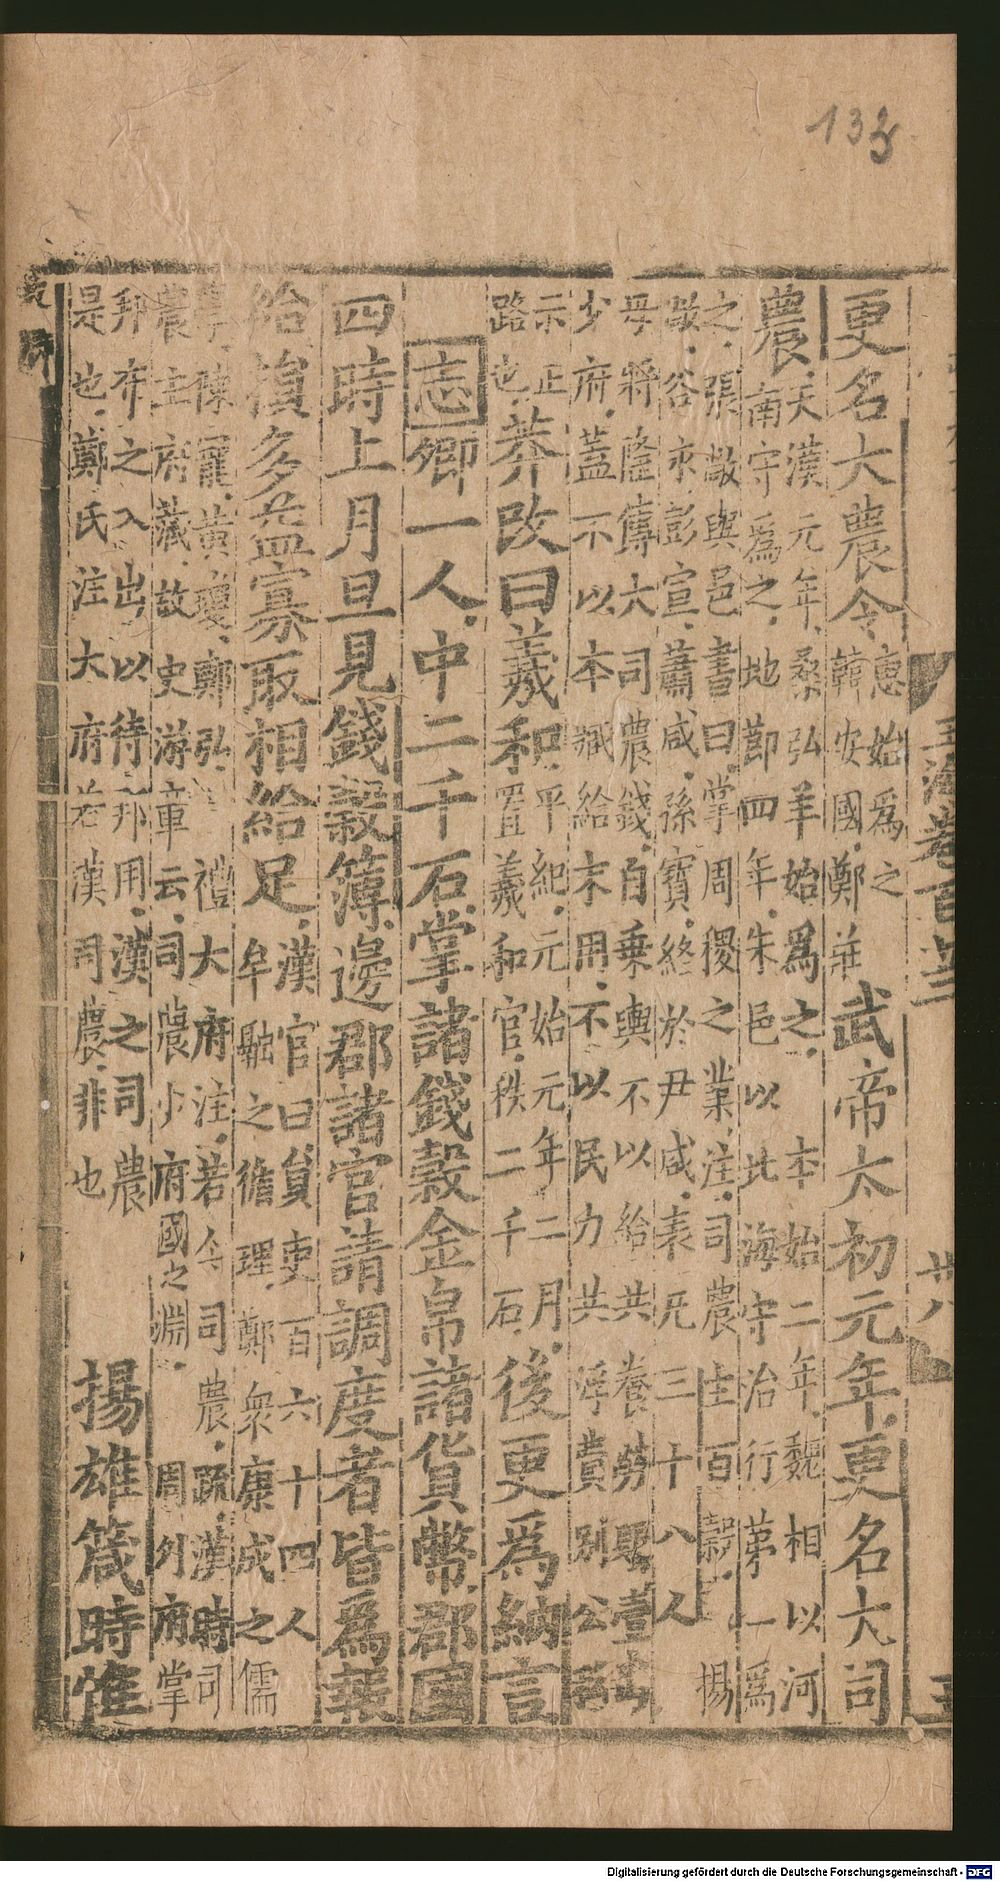 133
更名大農令惠始爲之韓安國鄭莊武帝太初元年更名大司
農天漢元年桑弘羊始爲之本始二年魏相以河南守爲之地節四年朱邑以北海守治行第一爲
之張敞與邑書曰掌周稷之業注司農主百穀揚敞谷永彭宣蕭咸孫寶終於尹咸表凡三十八人
毋將隆傳大司農錢自乗輿不以給共養勞賜壹出少府蓋不以本臧給末用不以民力共浮費別公私
示正路也莽改曰羲和平紀元始元年二月置羲和官秩二千石後更爲納言
志卿一人中二千石掌諸錢穀金帛諸貨幣郡國
四時上月旦見錢穀簿邊郡諸官請調度者皆爲報
給損多益寡取相給足漢官曰貟吏百六十四人牟融之循理鄭衆康成之儒
陳寵黃瓊鄭弘禮大府注若今司農疏漢時司農主府藏故史游章云司農少府國之淵周外府掌
邦布之入出以待邦用漢之司農是也鄭氏注大府若漢司農非也揚雄箴時惟
玉海卷百廿三
廿八
Digitalisierung gefördert durch die Deutsche Forschungsgemeinschaft - DFG